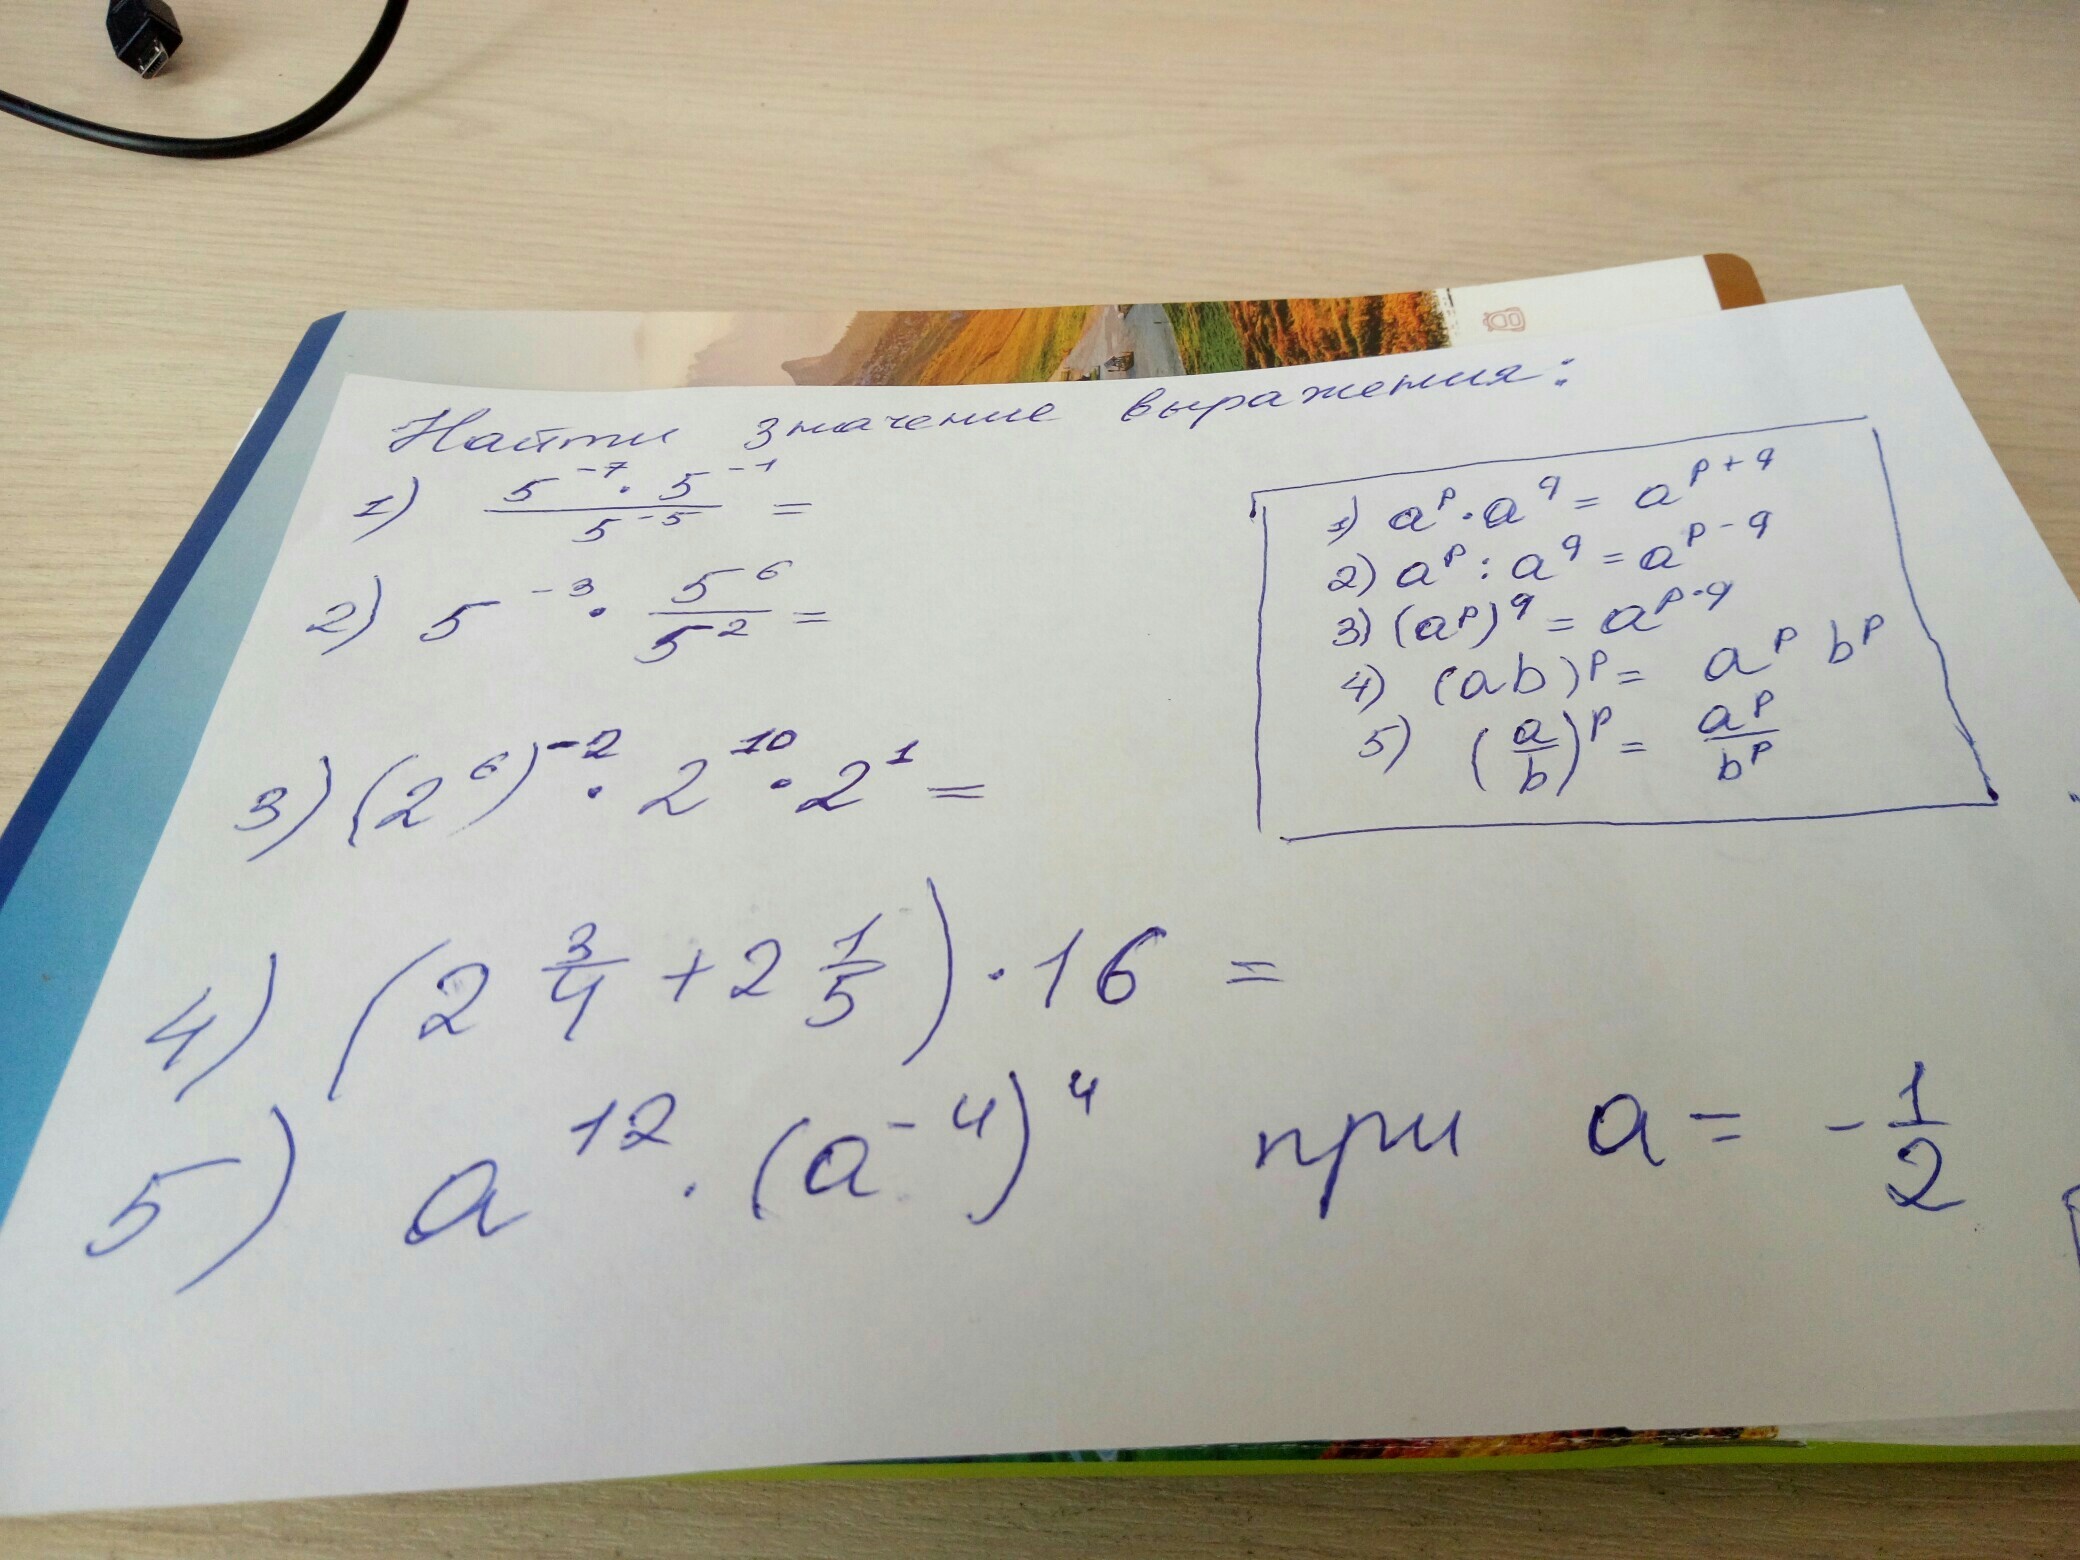 Найти значение выражения:
1) \frac{5^{-7} \cdot 5^{-1}}{5^{-5}} =
2) 5^{-3} \cdot \frac{5^6}{5^2} =
3) (2^6)^{-2} \cdot 2^{10} \cdot 2^1 =
4) (2 \frac{3}{4} + 2 \frac{1}{5}) \cdot 16 =
5) a^{12} \cdot (a^{-4})^4 при a = -\frac{1}{2}
1) a^p \cdot a^q = a^{p+q}
2) a^p : a^q = a^{p-q}
3) (a^p)^q = a^{p \cdot q}
4) (ab)^p = a^p b^p
5) (\frac{a}{b})^p = \frac{a^p}{b^p}